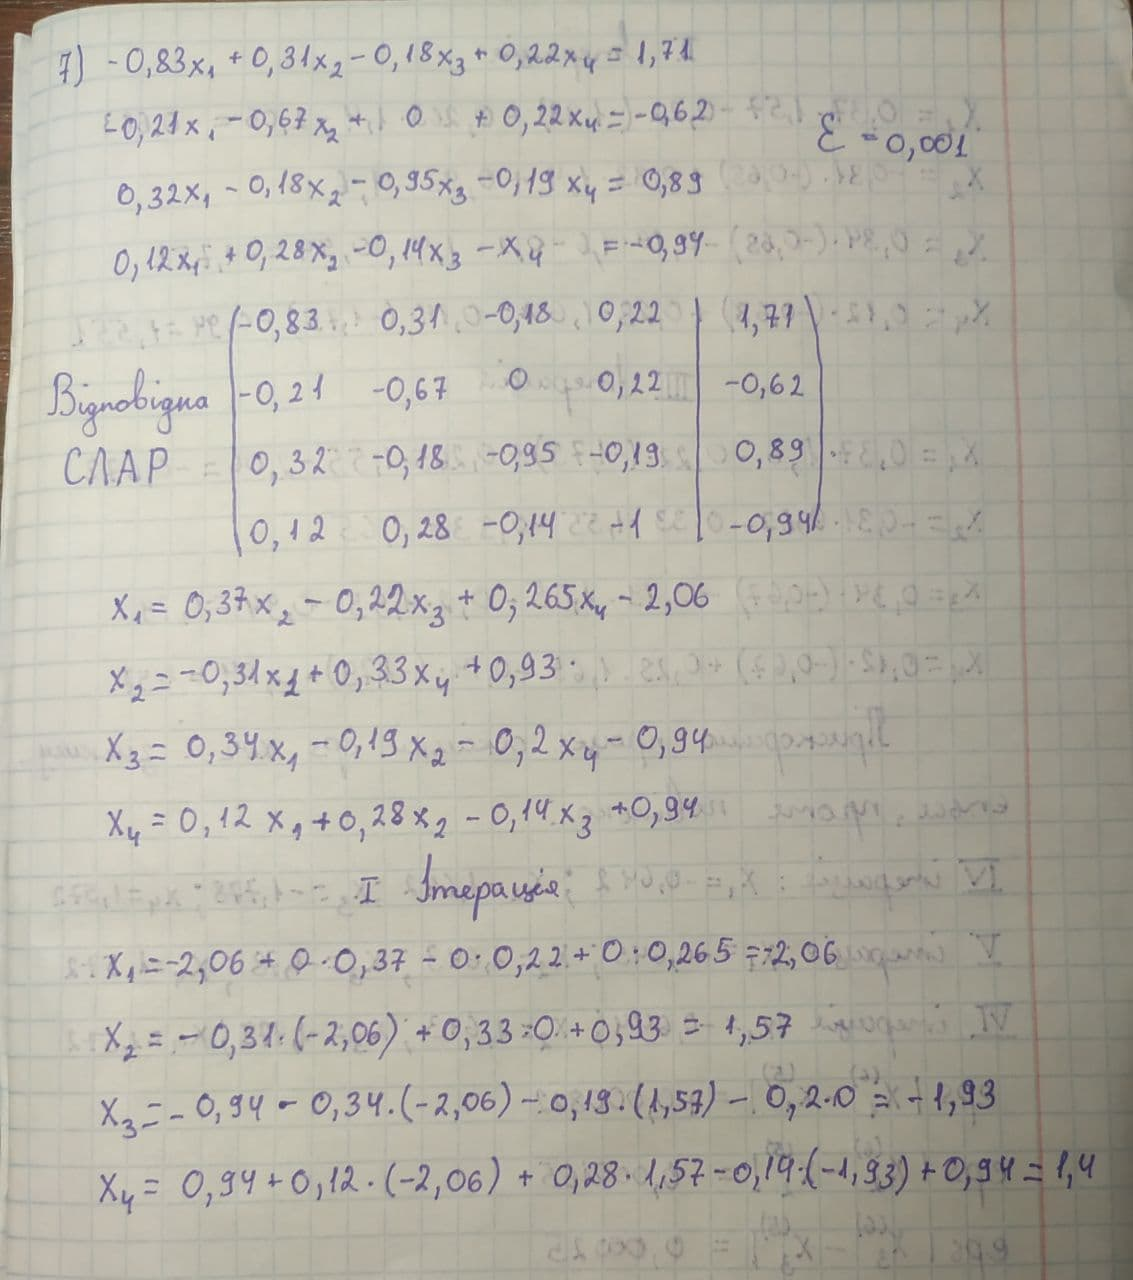 7) -0,83x₁ + 0,31x₂ - 0,18x₃ + 0,22x₄ = 1,71
-0,21x₁ - 0,67x₂ + 0 + 0,22x₄ = -0,62
ε = 0,001
0,32x₁ - 0,18x₂ - 0,95x₃ - 0,19x₄ = 0,89
0,12x₁ + 0,28x₂ - 0,14x₃ - x₄ = -0,94
Відповідна СЛАР
-0,83 0,31 -0,18 0,22 | 1,71
-0,21 -0,67 0 0,22 | -0,62
0,32 -0,18 -0,95 -0,19 | 0,89
0,12 0,28 -0,14 -1 | -0,94
x₁ = 0,37x₂ - 0,22x₃ + 0,265x₄ - 2,06
x₂ = -0,31x₁ + 0,33x₄ + 0,93
x₃ = 0,34x₁ - 0,19x₂ - 0,2x₄ - 0,94
x₄ = 0,12x₁ + 0,28x₂ - 0,14x₃ + 0,94
I Ітерація
x₁ = -2,06 + 0·0,37 - 0·0,22 + 0·0,265 = -2,06
x₂ = -0,31·(-2,06) + 0,33·0 + 0,93 = 1,57
x₃ = -0,94 - 0,34·(-2,06) - 0,19·(1,57) - 0,2·0 = -1,93
x₄ = 0,94 + 0,12·(-2,06) + 0,28·1,57 - 0,14·(-1,93) + 0,94 = 1,4